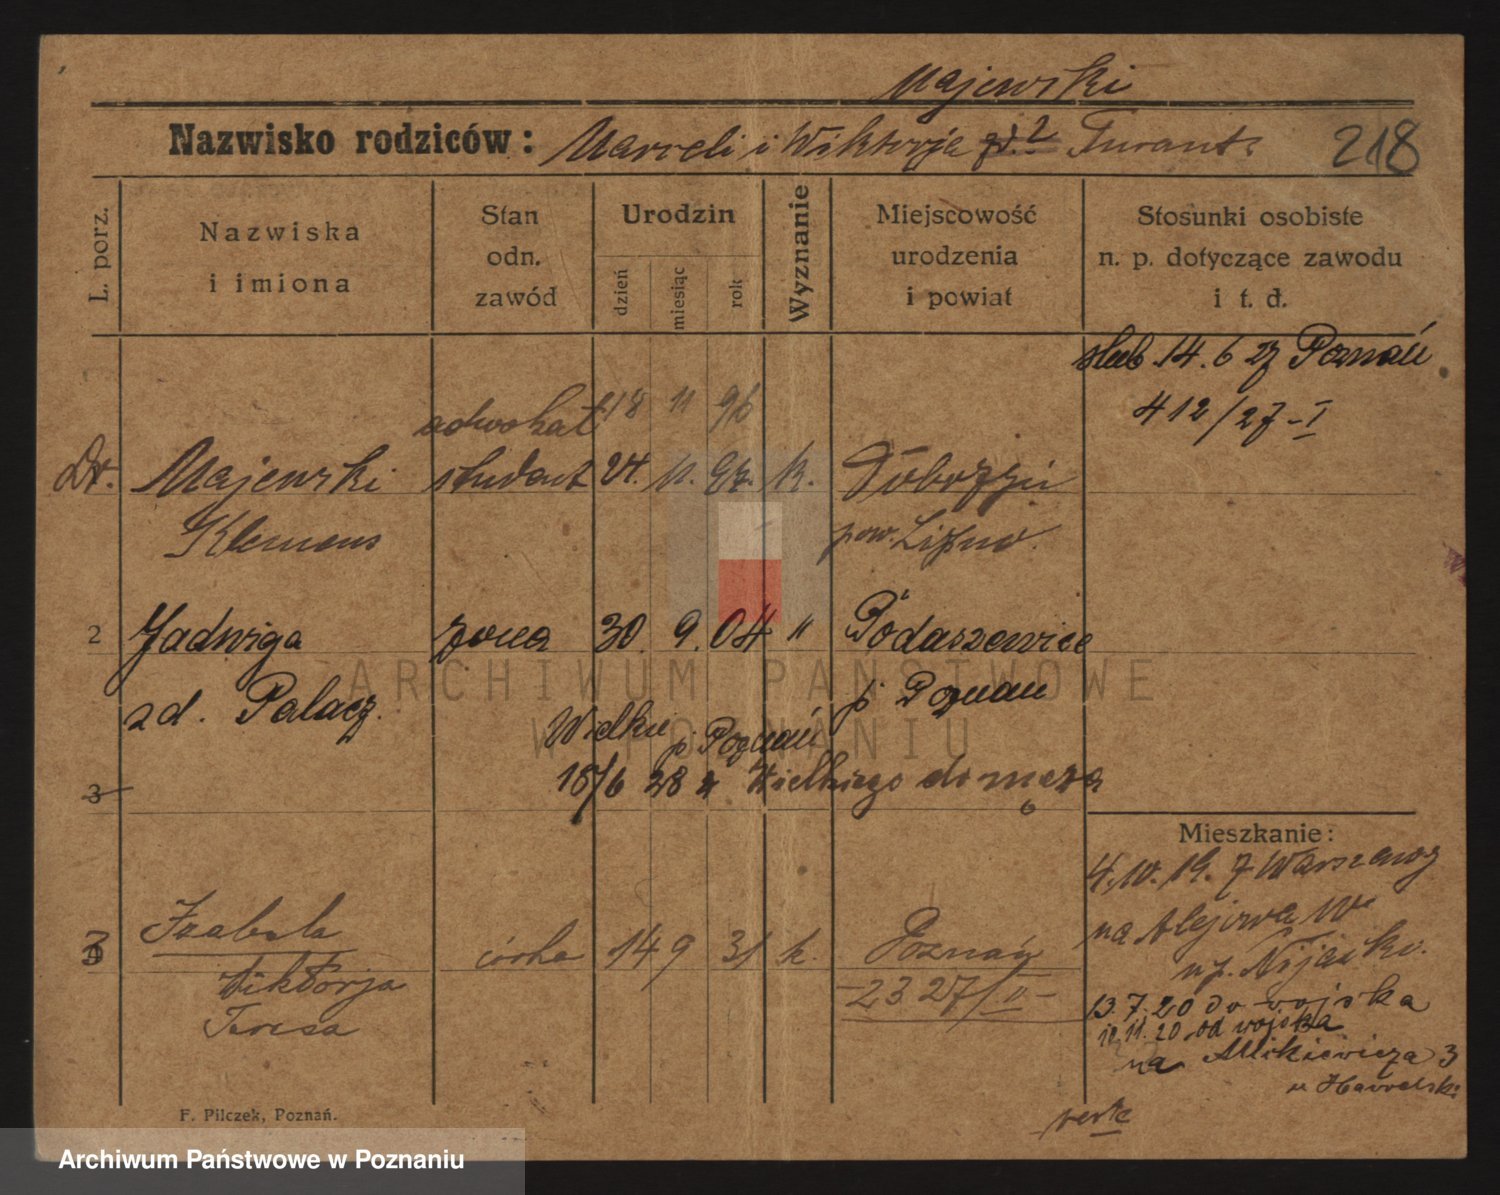 Majewski
Nazwisko rodziców: Marceli i Wiktorja
218
L. porz.
Nazwiska
i imiona
Stan
odn.
zawód
Urodzin
dzień
miesiąc
rok
Wyznanie
Miejscowość
urodzenia
i powiat
Stosunki osobiste
n. p. dotyczące zawodu
i t. d.
ślub 14.6 27 Poznań
412/27-I
adwokat 18 11 96
Dr. Majewski student 24. 11. 97. k.
Klemens pow. Lipno.
2 Jadwiga żona 30. 9. 04 "
zd. Palacz. p Poznań
Wielkie p Poznań
3 18/6 28 z Wielkiego do męża
Mieszkanie:
4.10.19. z Warszawy
na Alejowa
3 Izabela córka 14 9 31 k. Poznań
Wiktorja -2327/II-
Teresa
13.7.20 do wojska
11.20 od wojska
na Mickiewicza 3
F. Pilczek, Poznań.
ARCHIWUM PAŃSTWOWE
W POZNANIU
Archiwum Państwowe w Poznaniu